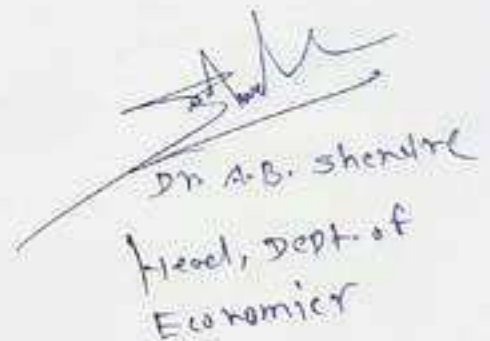 Dr. A.B. Shendre
Head, Dept. of
Economics